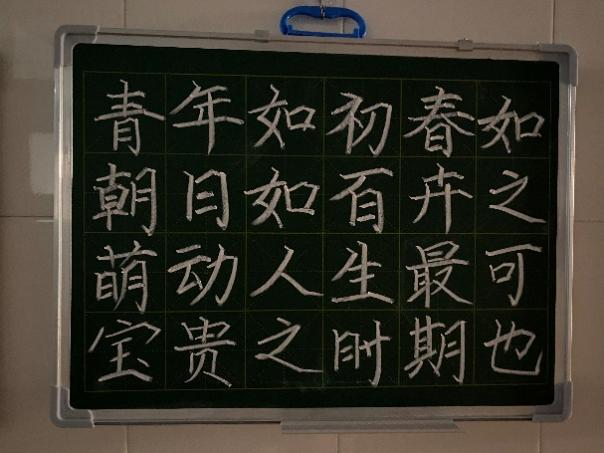 青年如初春如
朝日如百卉之
萌动人生最可
宝贵之时期也